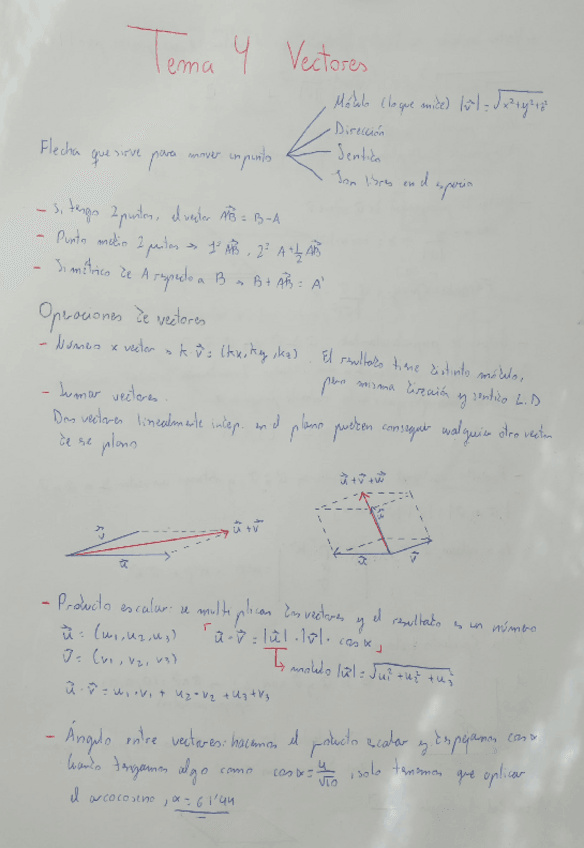 Tema 4 Vectores
Módulo (lo que mide) |v⃗| = √x²+y²+z²
Dirección
Flecha que sirve para mover un punto
Sentido
Son libres en el espacio
- Si tengo 2 puntos, el vector AB⃗ = B-A
- Punto medio 2 puntos → 1º AB⃗. 2º A+½AB⃗
- Simétrico de A respecto a B → B+AB⃗ = A'
Operaciones de vectores
- Número x vector → k·v⃗ = (kx, ky, kz). El resultado tiene distinto módulo,
pero misma dirección y sentido L.D
- Sumar vectores.
Dos vectores linealmente indep. en el plano pueden conseguir cualquier otro vector
de ese plano
u⃗+v⃗+w⃗
v⃗ u⃗+v⃗
u⃗
u⃗ v⃗
- Producto escalar: se multiplican dos vectores y el resultado es un número
u⃗ = (u₁, u₂, u₃) u⃗·v⃗ = |u⃗|·|v⃗|·cos α
v⃗ = (v₁, v₂, v₃) módulo |u⃗| = √u₁²+u₂²+u₃²
u⃗·v⃗ = u₁·v₁ + u₂·v₂ + u₃+v₃
- Ángulo entre vectores: hacemos el producto escalar y despejamos cos α.
tengamos algo como cos α = 4/√ , solo tenemos que aplicar
el arcocoseno, α = 61'44